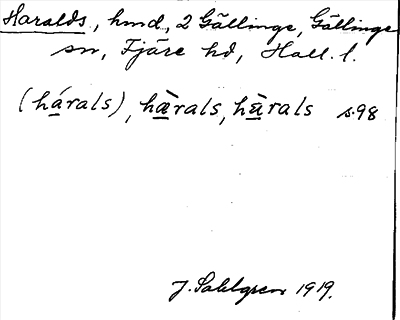 Haralds, hmd, 2 Gällinge, Gällinge
sn, Fjäre hd, Hall. l.
(hárals), hæ̀rals, hùrals s. 98
J. Sahlgren 1919.